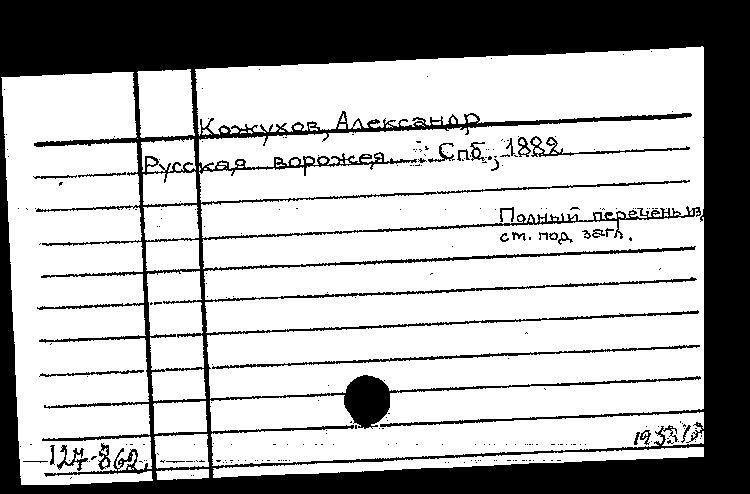 Кожухов, Александр
Русская ворожея. Спб., 1882
Полный перечень
см. под загл.
127-862